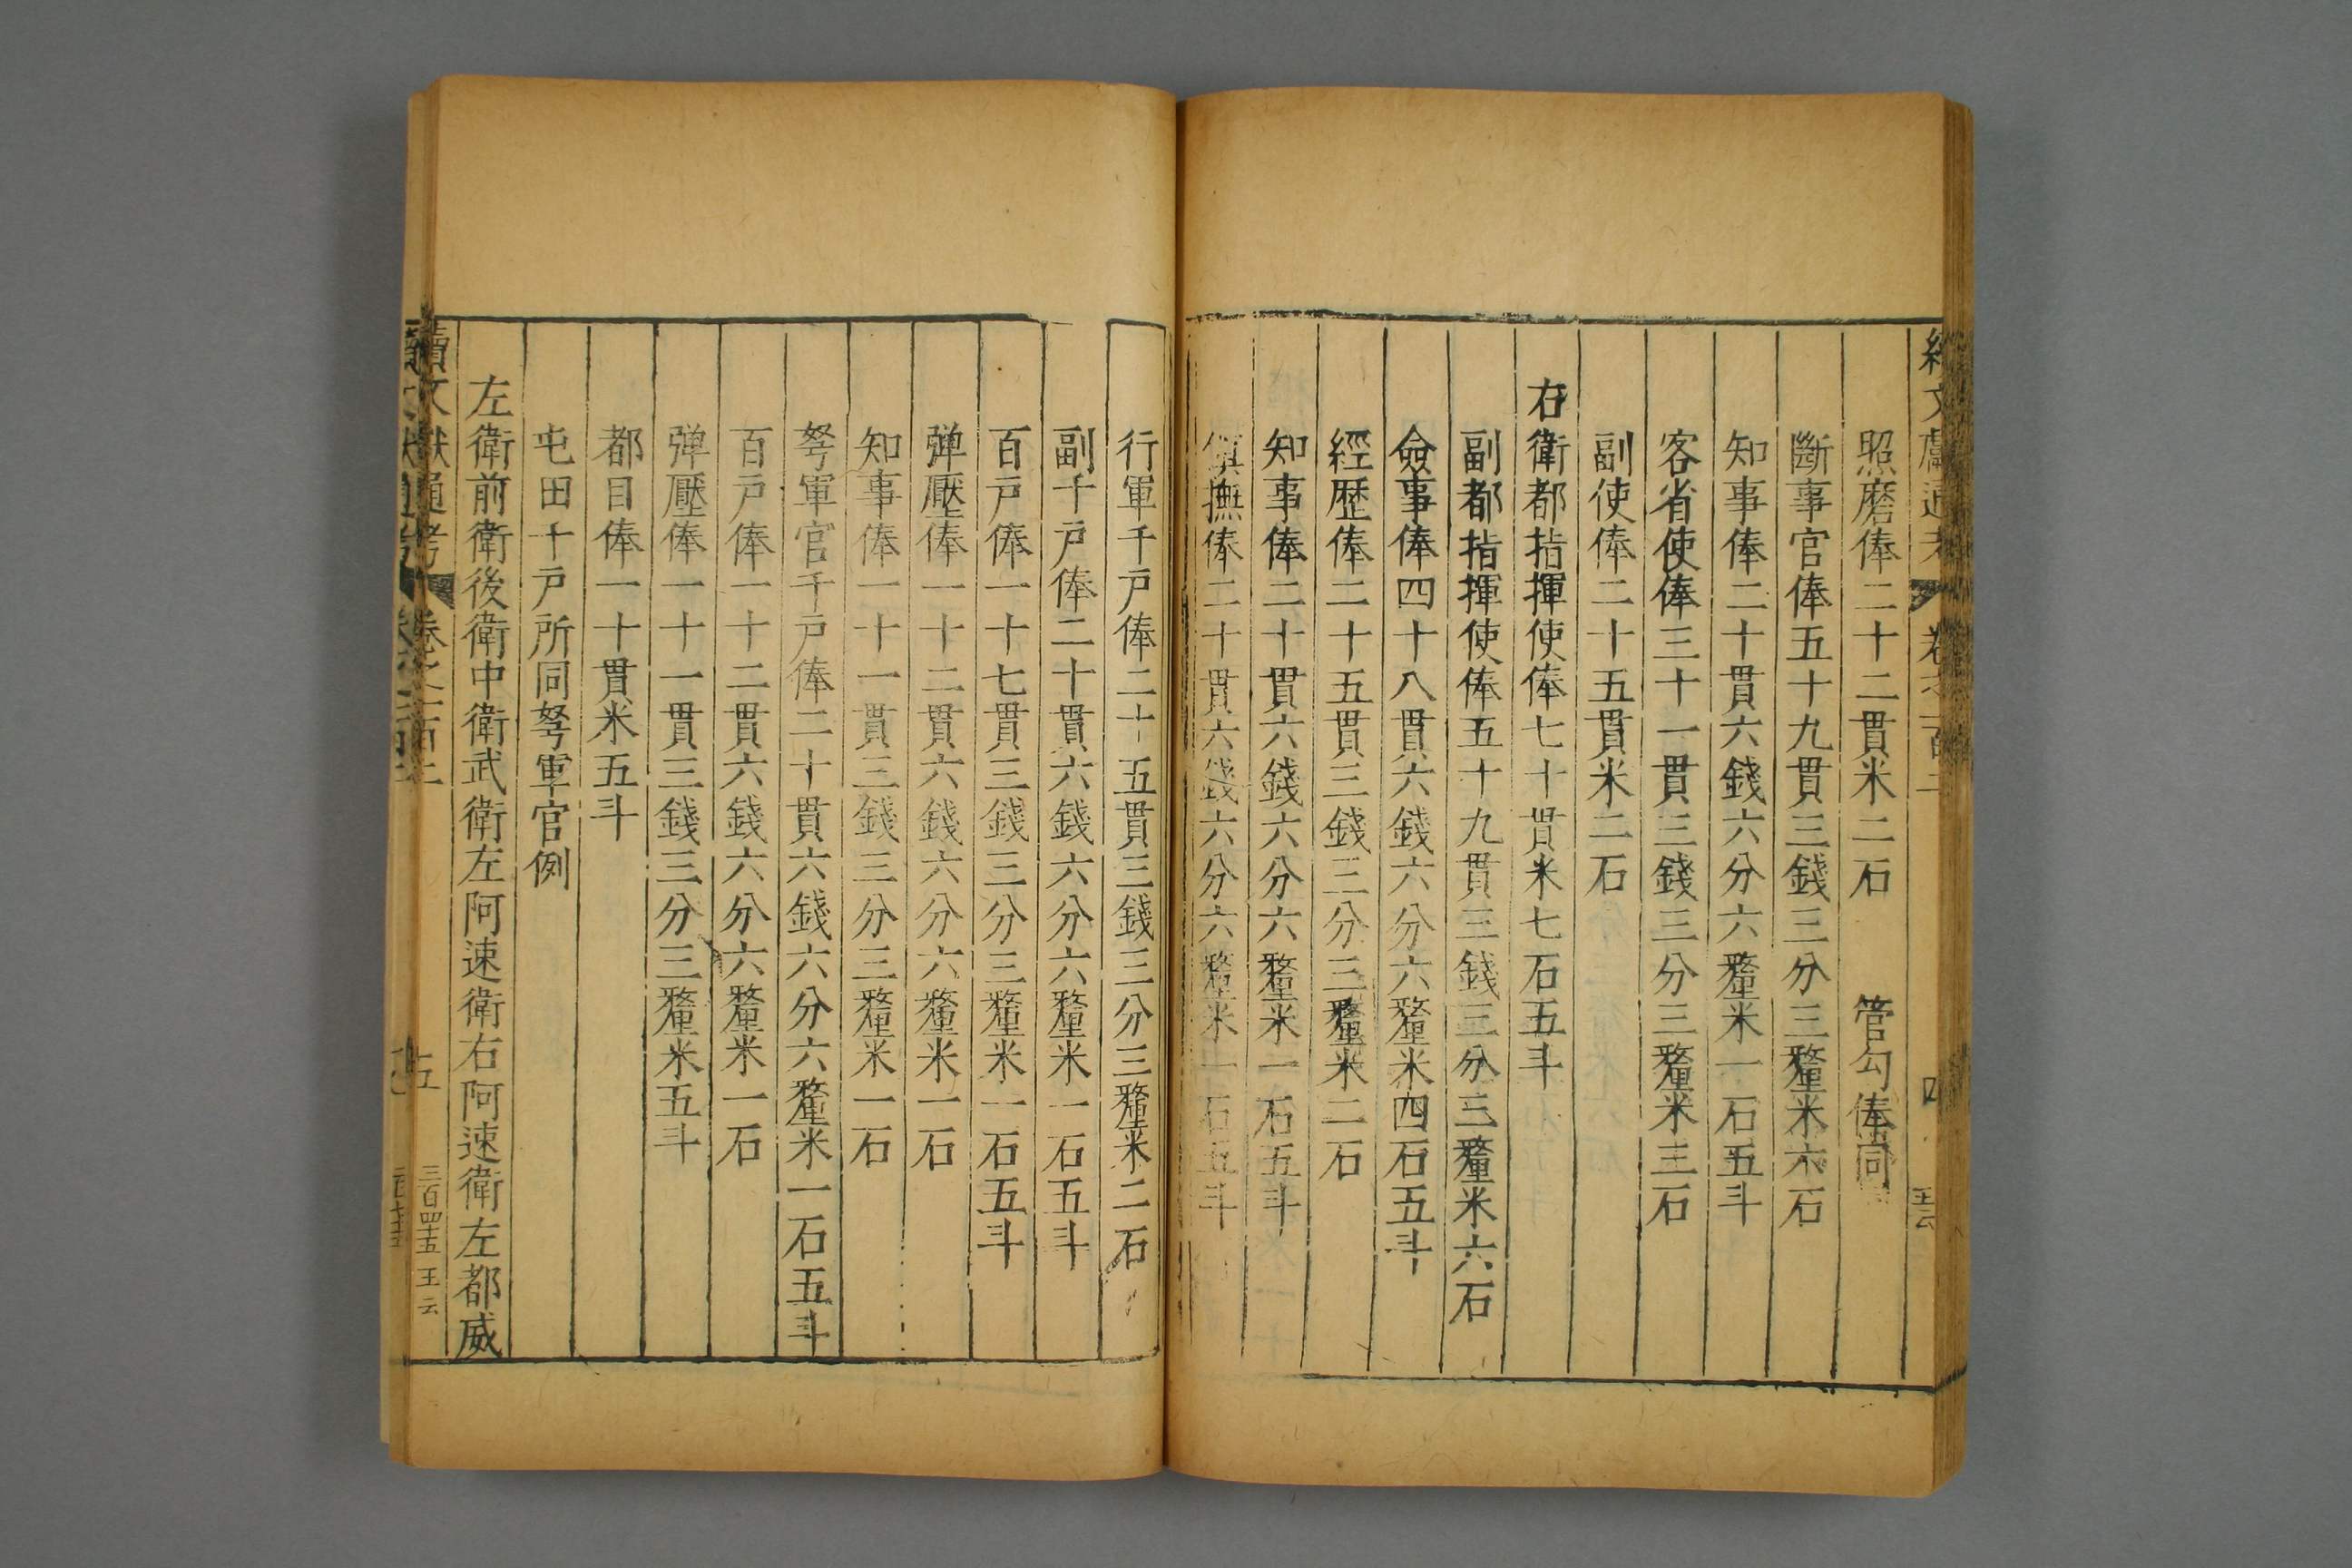 文獻通考 卷之一百二 四
照磨俸二十二貫米二石 管勾俸同
斷事官俸五十九貫三錢三分三釐米六石
知事俸二十貫六錢六分六釐米一石五斗
客省使俸三十一貫三錢三分三釐米三石
副使俸二十五貫米二石
右衛都指揮使俸七十貫米七石五斗
副都指揮使俸五十九貫三錢三分三釐米六石
僉事俸四十八貫六錢六分六釐米四石五斗
經歷俸二十五貫三錢三分三釐米二石
知事俸二十貫六錢六分六釐米一石五斗
鎮撫俸二十貫六錢六分六釐米一石五斗
行軍千戶俸二十五貫三錢三分三釐米二石
副千戶俸二十貫六錢六分六釐米一石五斗
百戶俸一十七貫三錢三分三釐米一石五斗
弹壓俸一十二貫六錢六分六釐米一石
知事俸一十一貫三錢三分三釐米一石
弩軍官千戶俸二十貫六錢六分六釐米一石五斗
百戶俸一十二貫六錢六分六釐米一石
弹壓俸一十一貫三錢三分三釐米五斗
都目俸一十貫米五斗
屯田千戶所同弩軍官例
左衛前衛後衛中衛武衛左阿速衛右阿速衛左都威
續文獻通考 卷之一百二 五 三百四十五 王云